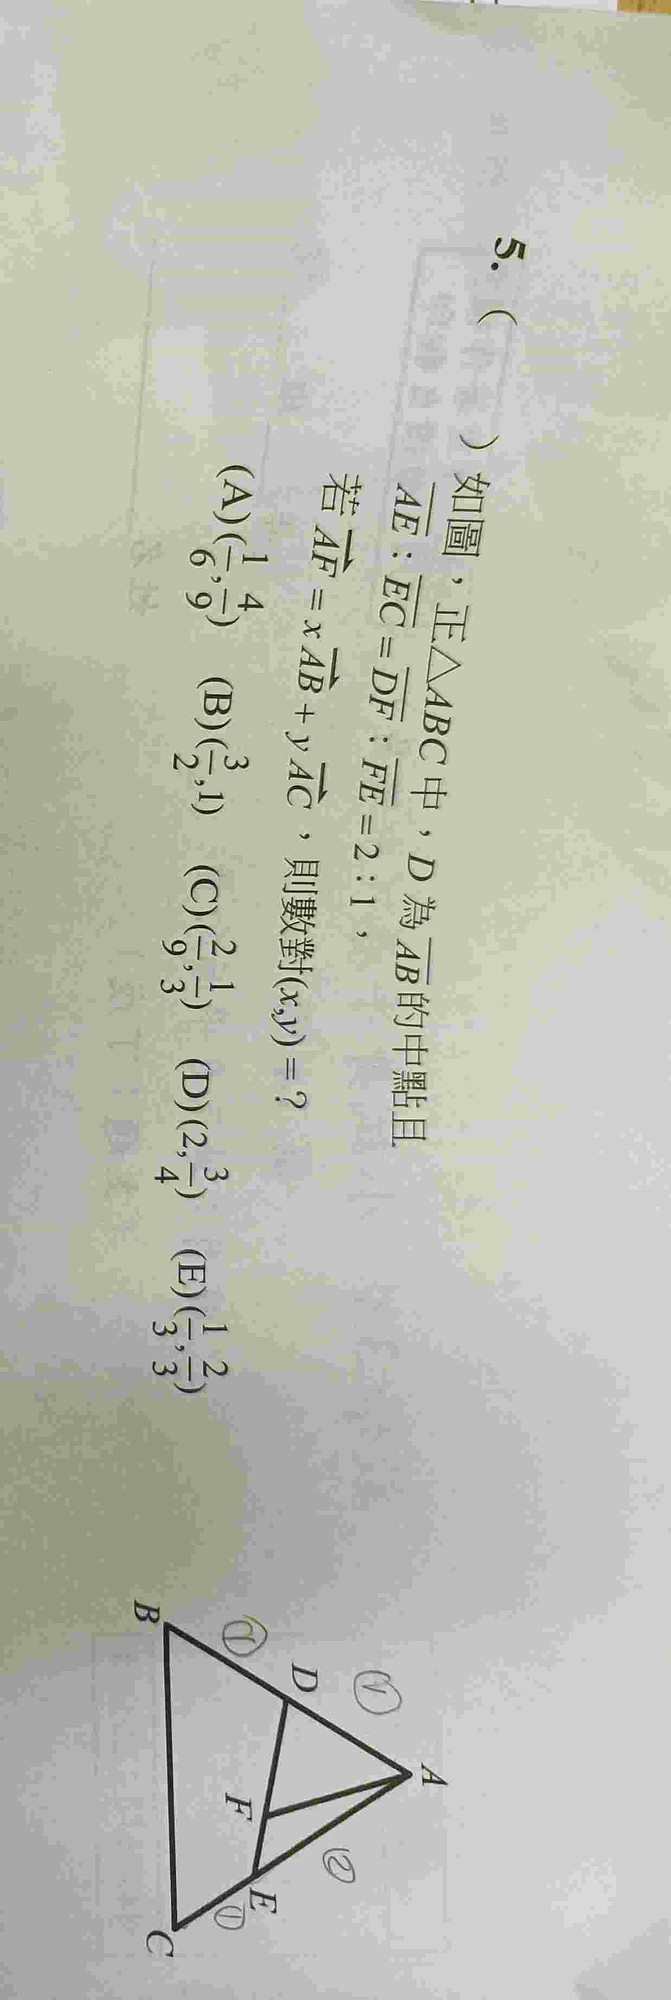 5. (   ) 如圖，正△ABC 中，D 為 AB 的中點且
AE : EC = DF : FE = 2 : 1，
若 AF = x AB + y AC，則數對(x,y) = ?
(A)(1/6, 4/9) (B)(3/2, 1) (C)(2/9, 1/3) (D)(2, 3/4) (E)(1/3, 2/3)
A
①
D
②
①
F
E
①
B
C